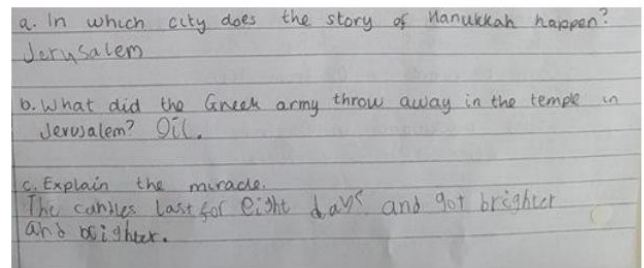 a. In which city does the story of Hanukkah happen?
Jerusalem
b. What did the Greek army throw away in the temple in
Jerusalem? Oil.
c. Explain the miracle.
The candles last for eight days and got brighter
and brighter.